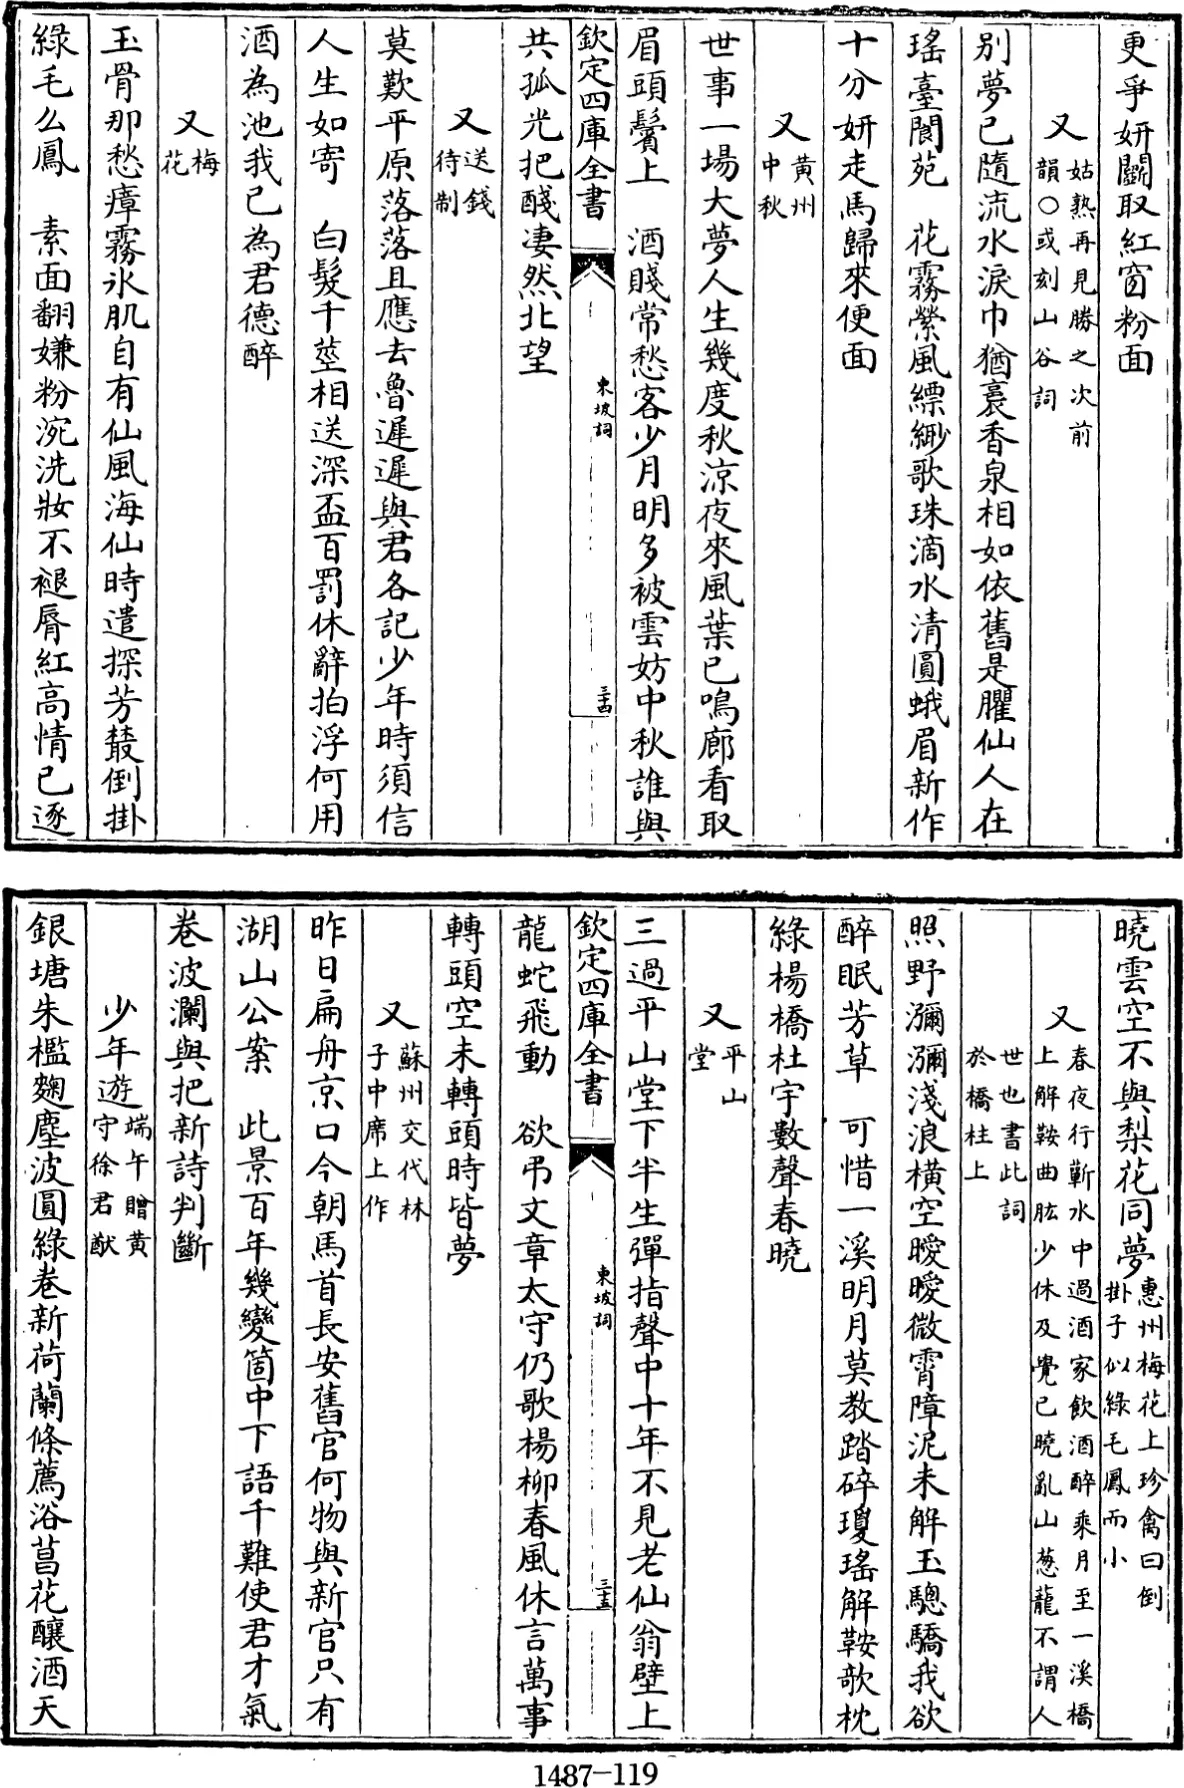 更爭妍鬭取紅窗粉面
又姑熟再見勝之次前
韻○或刻山谷詞
别夢已隨流水淚巾猶裛香泉相如依舊是臞仙人在
瑤臺閬苑　花霧縈風縹緲歌珠滴水清圓蛾眉新作
十分妍走馬歸來便面
又黄州
中秋
世事一場大夢人生幾度秋涼夜來風葉已鳴廊看取
眉頭鬢上　酒賤常愁客少月明多被雲妨中秋誰與
欽定四庫全書
東坡詞
三十四
共孤光把醆凄然北望
又送錢
待制
莫歎平原落落且應去魯遲遲與君各記少年時須信
人生如寄　白髮千莖相送深盃百罰休辭拍浮何用
酒為池我已為君德醉
又梅
花
玉骨那愁瘴霧氷肌自有仙風海仙時遣探芳叢倒掛
綠毛么鳳　素面翻嫌粉涴洗妝不褪脣紅高情已逐
曉雲空不與梨花同夢惠州梅花上珍禽曰倒
掛子似綠毛鳳而小
又春夜行蘄水中過酒家飲酒醉乘月至一溪橋
上解鞍曲肱少休及覺已曉亂山葱蘢不謂人
世也書此詞
於橋柱上
照野瀰瀰淺浪橫空曖曖微霄障泥未解玉驄驕我欲
醉眠芳草　可惜一溪明月莫教踏碎瓊瑤解鞍欹枕
綠楊橋杜宇數聲春曉
又平山
堂
三過平山堂下半生彈指聲中十年不見老仙翁壁上
欽定四庫全書
東坡詞
三十五
龍蛇飛動　欲弔文章太守仍歌楊柳春風休言萬事
轉頭空未轉頭時皆夢
又蘇州交代林
子中席上作
昨日扁舟京口今朝馬首長安舊官何物與新官只有
湖山公案　此景百年幾變箇中下語千難使君才氣
卷波瀾與把新詩判斷
少年遊端午贈黄
守徐君猷
銀塘朱檻麴塵波圓綠卷新荷蘭條薦浴菖花釀酒天
1487-119